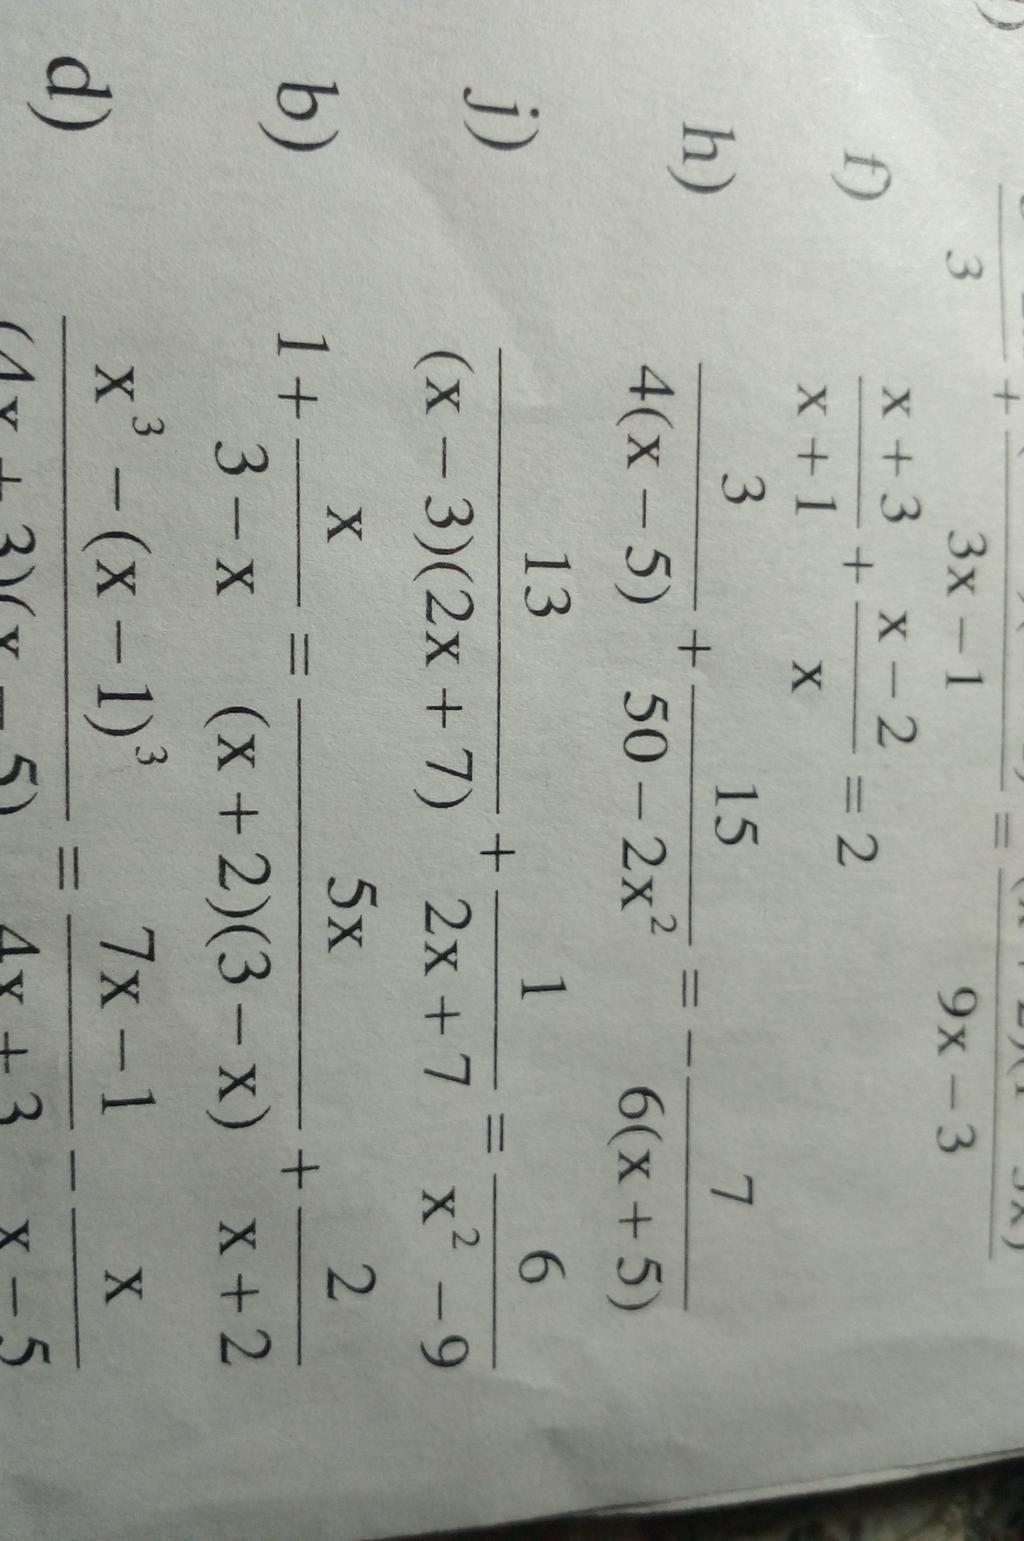 3 + 3x − 1 = 9x − 3
f) (x + 3)/(x + 1) + (x − 2)/x = 2
h) 3/(4(x − 5)) + 15/(50 − 2x²) = − 7/(6(x + 5))
j) 13/((x − 3)(2x + 7)) + 1/(2x + 7) = 6/(x² − 9)
b) 1 + x/(3 − x) = 5x/((x + 2)(3 − x)) + 2/(x + 2)
d) (x³ − (x − 1)³)/((4x + 3)(x − 5)) = (7x − 1)/(4x + 3) − x/(x − 5)